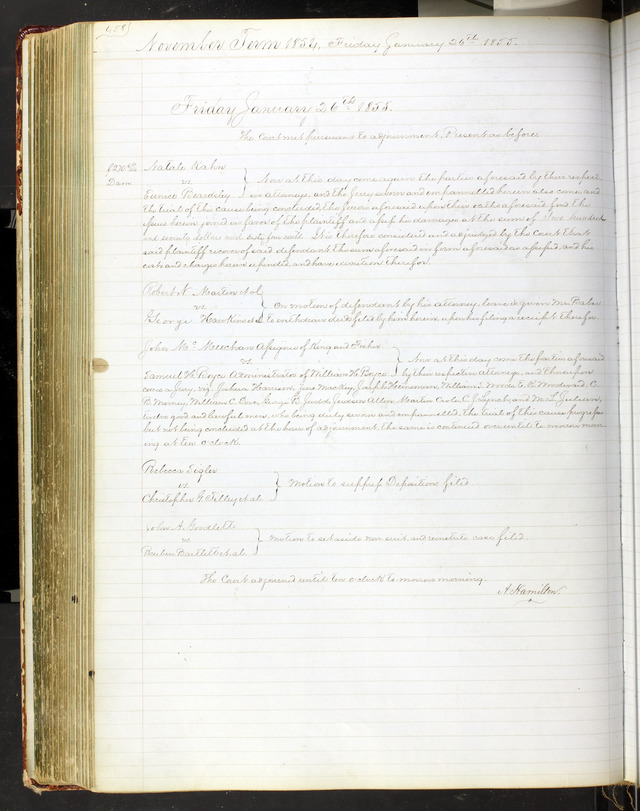 458
November Term 1854, Friday January 26th 1855.
Friday January 26th 1855.
The Court met pursuant to adjournment, Present as before
Natale Kahn
vs
Eunice Beardsley
Dam
Now at this day come again the parties aforesaid by their respect
ive attorneys, and the Jury sworn and empannelled herein also come, and
the trial of this cause being concluded the jurors aforesaid upon their oaths aforesaid find the
issue herein joined in favor of the plaintiff and assess his damages at the sum of two hundred
and seventy dollars and sixty five cents. It is therefore considered and adjudged by the Court that
said plaintiff recover of said defendant the sum aforesaid in form aforesaid as assessed, and his
costs and charges herein expended, and have execution therefor.
Robert N. Martin et al
vs
George
On motion of defendant by his attorney, leave is given
to withdraw deed filed by him herein, upon his filing a receipt therefor.
John Mc Meechan Assignee of King and Fisher
vs
Samuel H. Boyce Administrator of William H. Boyce
Now at this day come the parties aforesaid
by their respective attorneys, and thereupon
comes a Jury, viz, Joshua Harrison, Jesse Mackey, Joseph Heinemann, William S. Woods, E. R. Woodward, C.
B. Manny, William C. Orr, George B. Judd, Judson Allen, Martin Carle, C. and M. L. Julian,
twelve good and lawful men, who being duly sworn and empannelled, the trial of this cause progresses
but not being concluded at the hour of adjournment, the same is continued over until to morrow morn
ing at ten o'clock.
Rebecca Sigler
vs
Christopher G. Tilley et al.
Motion to suppress Depositions filed
John A. Goodlett
vs
Reuben Bartlett et al.
Motion to set aside non suit and reinstate case filed.
The Court adjourned until ten o'clock to morrow morning.
A. Hamilton.